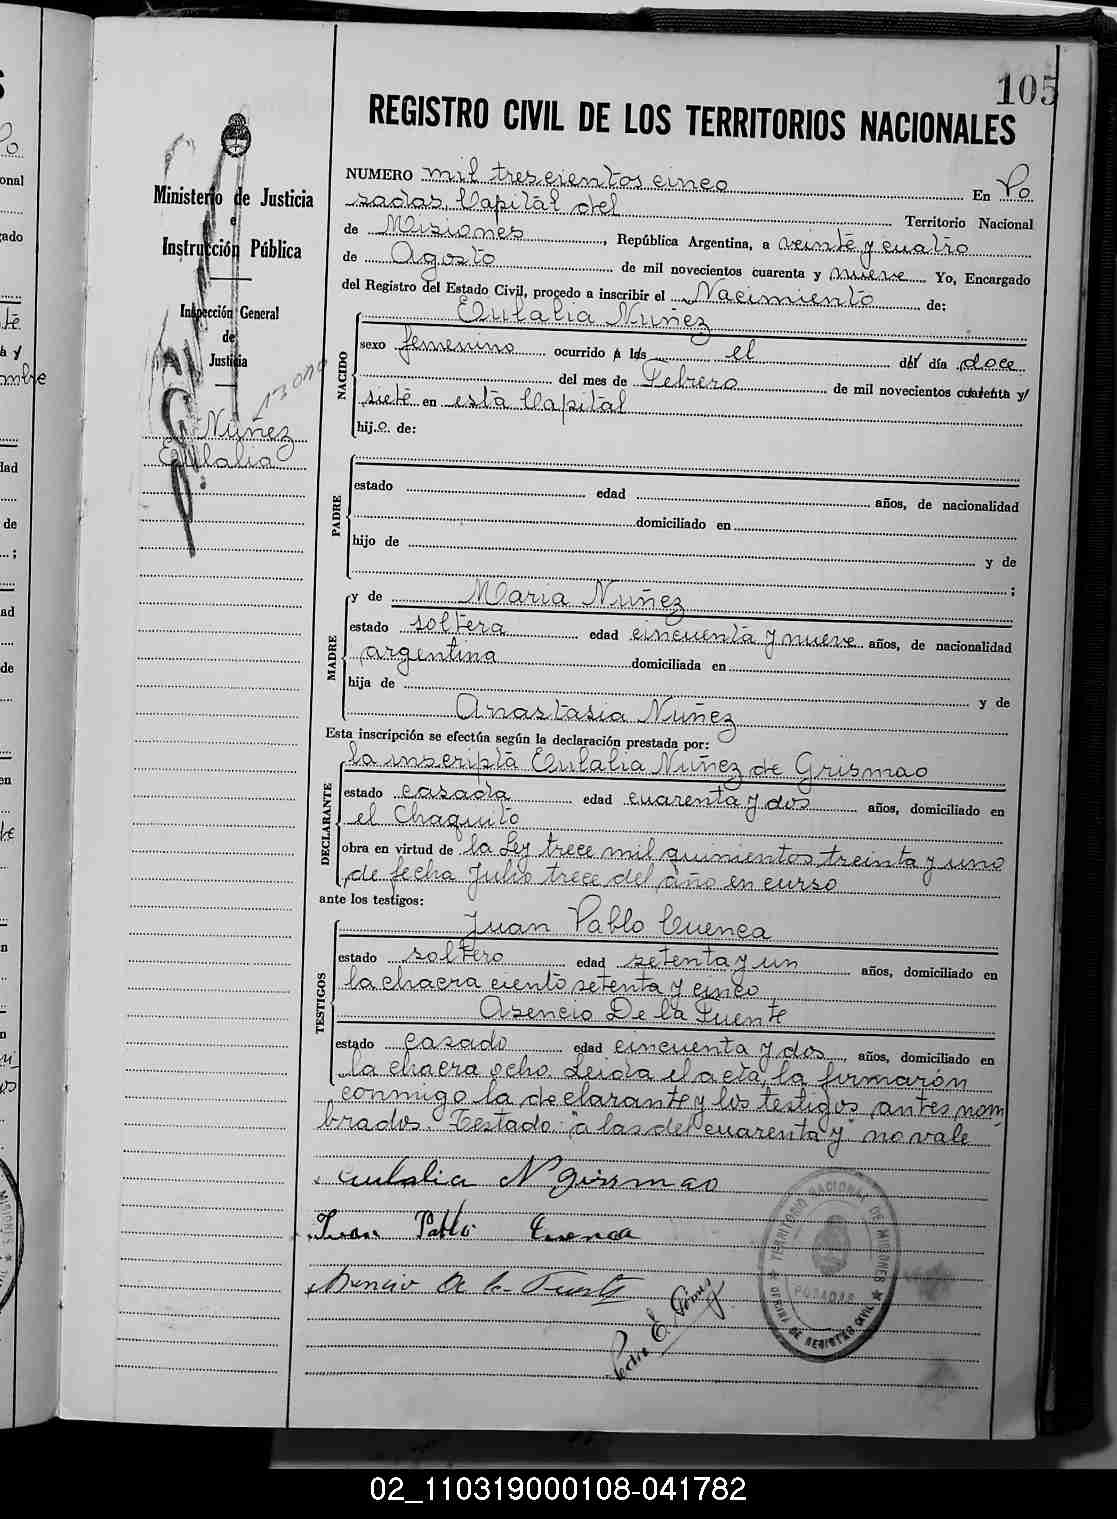 105
REGISTRO CIVIL DE LOS TERRITORIOS NACIONALES
Ministerio de Justicia
e
Instrucción Pública
Inspección General
de
Justicia
Nuñez
Eulalia
NUMERO mil trescientos cinco En Po
sadas, Capital del Territorio Nacional
de Misiones, República Argentina, a veinte y cuatro
de Agosto de mil novecientos cuarenta y nueve Yo, Encargado
del Registro del Estado Civil, procedo a inscribir el Nacimiento de:
NACIDO
Eulalia Nuñez
sexo femenino ocurrido a las el del día doce
del mes de Febrero de mil novecientos cuarenta y
siete en esta Capital
hij.o de:
PADRE
estado edad años, de nacionalidad
domiciliado en
hijo de y de
;
MADRE
y de Maria Nuñez
estado soltera edad cincuenta y nueve años, de nacionalidad
argentina domiciliada en
hija de y de
Anastasia Nuñez
Esta inscripción se efectúa según la declaración prestada por:
DECLARANTE
la inscripta Eulalia Nuñez de Grismao
estado casada edad cuarenta y dos años, domiciliado en
el Chaquito
obra en virtud de la Ley trece mil quinientos treinta y uno
de fecha Julio trece del año en curso
ante los testigos:
TESTIGOS
Juan Pablo Cuenca
estado soltero edad setenta y un años, domiciliado en
la chacra ciento setenta y cinco
Asencio De la Fuente
estado casado edad cincuenta y dos años, domiciliado en
la chacra ocho. Leida el acta, la firmarón
conmigo la declarante y los testigos antes nom
brados. Testado: "a las del cuarenta y" no vale
eulalia N grismao
Juan Pablo Cuenca
Asencio De la Fuente
TERRITORIO NACIONAL DE MISIONES
POSADAS
OFICINA DE REGISTRO CIVIL
02_110319000108-041782